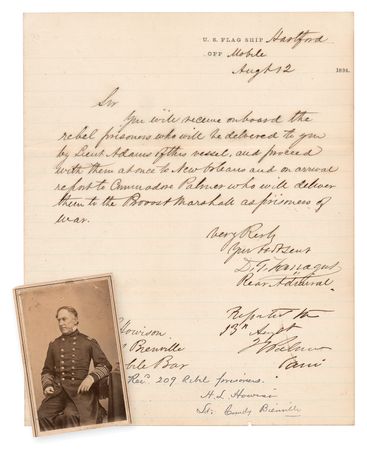 U. S. FLAG SHIP Hartford
OFF Mobile
Augt 12 1864.
Sir
You will receive onboard the
rebel prisoners who will be delivered to you
by Lieut Adams of this vessel, and proceed
with them at once to New Orleans and on arrival
report to Commodore Palmer who will deliver
them to the Provost Marshall as prisoners of
war.
Very Resp
Your obt Sert
D. G. Farragut
Rear Admiral
Howison
Bienville
Bar
Reported
13th Augt
Palmer
Rec. 209 Rebel prisoners.
H. L. Howison
Lt. Comdg Bienville